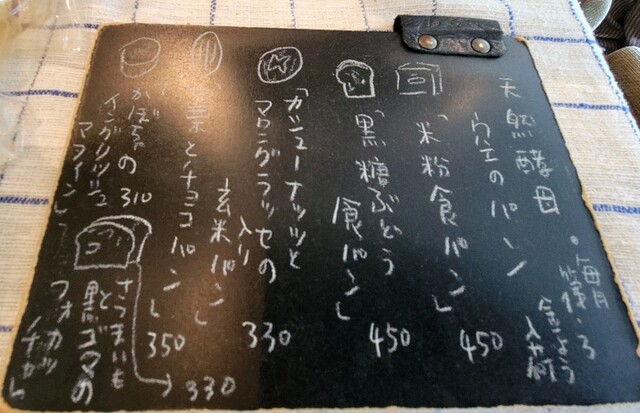 ・毎月
第1・3
金よう
入荷
天然酵母
のパン
「米粉食パン」
450
「黒糖ぶどう
食パン」
450
「カシューナッツと
マロングラッセの
入り
玄米パン」
330
栗とチョコパン」
350
かぼちゃの
イングリッシュ
マフィン」
310
さつまいも
と
黒ゴマの
フォカッ
チャ」
330